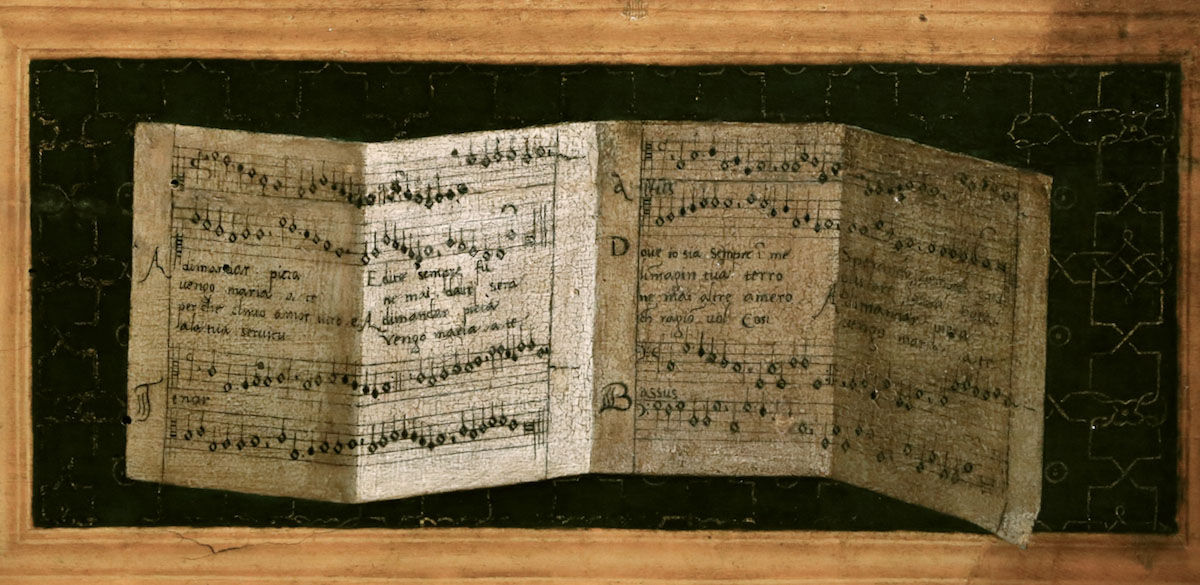 A dimandar picia
uengo maria a te
perche mio amor uero e
ala tua seruicu
E dire sempre fu
ne mai sera
A dimandar picia
Vengo maria a te
Tenor
Altus
Doue io sia sempre ī me
limagin tua terro
ne mai altre amero
ch uol Cosi
A dimandar picia
uengo maria a te
Bassus